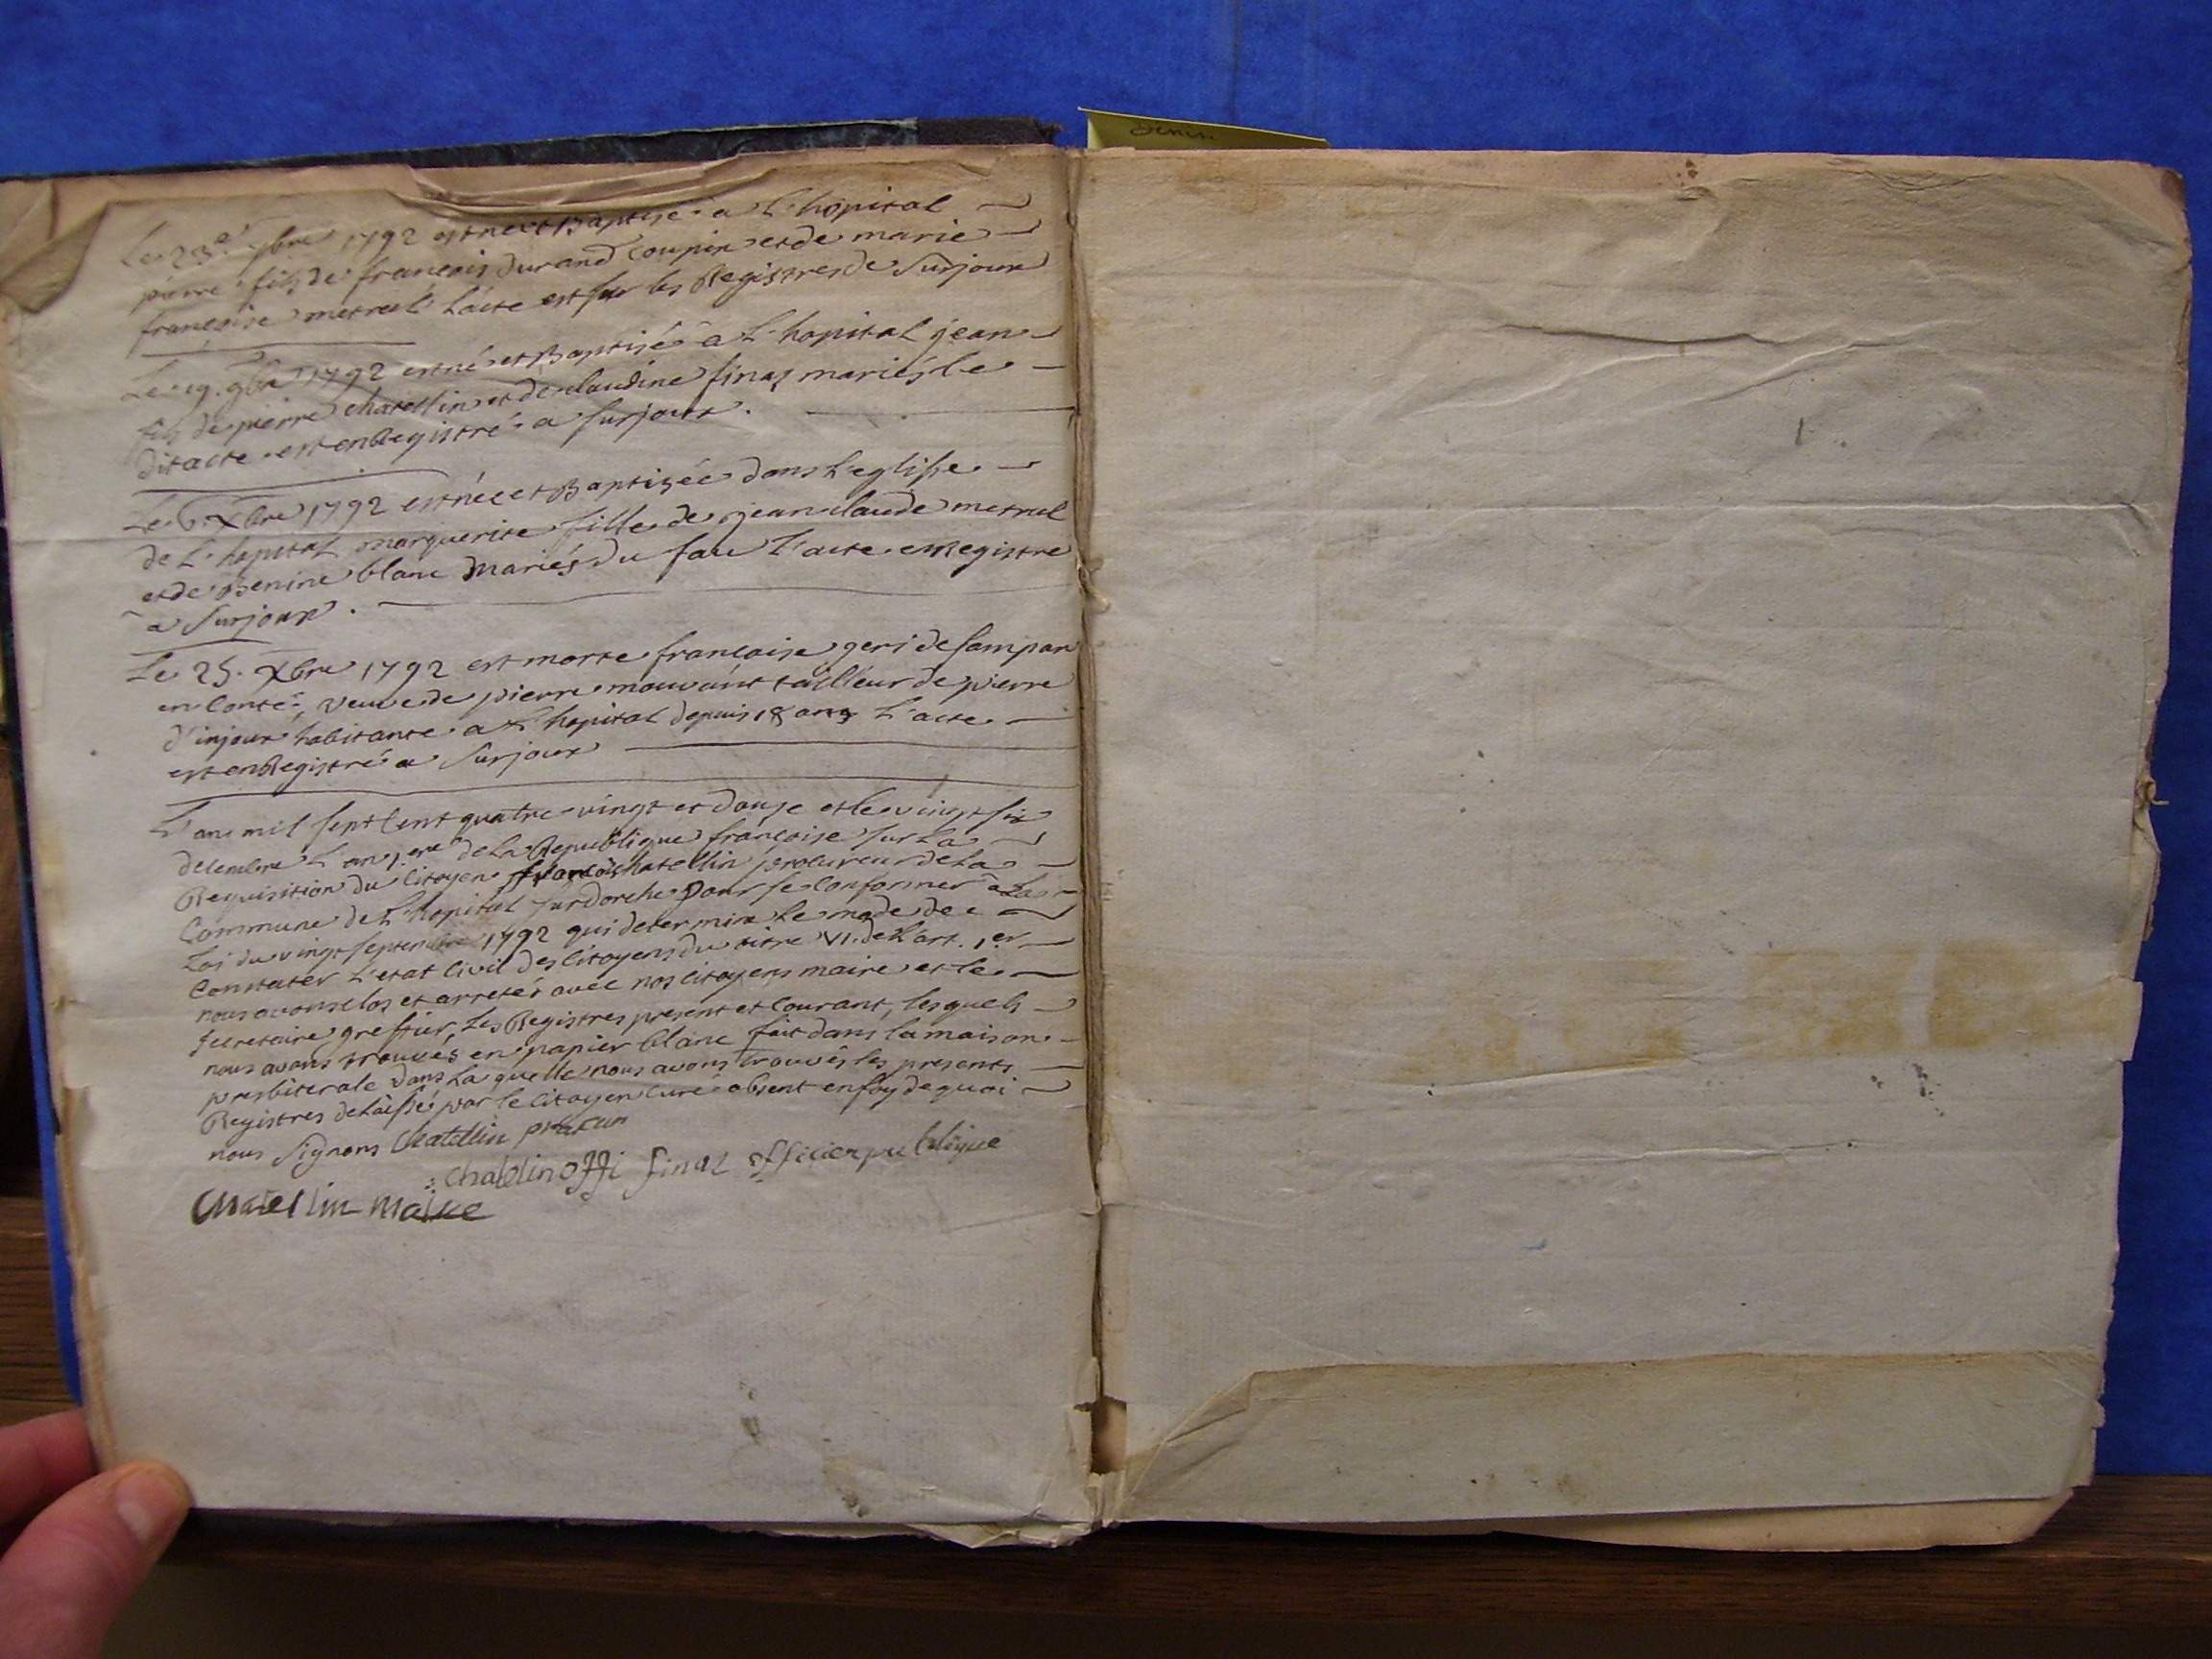 Denis
Le 23e 7bre 1792 est né et Baptisé a L'hôpital
pierre fils de françois durand Coupin et de marie
françoise metral L'acte est sur les Registres de Surjoux
Le 19. 9bre 1792 est né et Baptisé a L'hopital jean
fils de pierre chatellin et de claudine finaz mariés le
dit acte est enRegistré a surjoux.
Le 6. Xbre 1792 est née et Baptisée dans L'eglisse
de L'hopital marguerite fille de jean claude metral
et de Benine blanc mariés du fau L'acte enRegistre
a Surjoux.
Le 25. Xbre 1792 est morte francoise geri de Sampan
en Conté, veuve de pierre mouvánt tailleur de pierre
d'injoux habitante a L'hopital depuis 18 ans L'acte
est enRegistré a Surjoux
L'an mil sept Cent quatre vingt et douze et le vingt six
decembre L'an 1.ere de La Republique françoise sur La
Requisition du Citoyen françois Chatellin procureur de La
Commune de L'hopital sur dorche Pour se Conformer a La
Loi du vingt septembre 1792 qui determine Le mode de
Constater L'etat Civil des Citoyens du titre VI. de L'art. 1er
nous avons clos et arretés avéc nos citoyens maire et le
secretaire greffier, Les Registres present et Courant, lesquels
nous avons trouvés en papier blanc fait dans la maison
presbiterale dans La quelle nous avons trouvés les presents
Registres delaissé par le Citoyen Curé absent en foy de quoi
nous Signons Chatellin
chatelin offi finaz officier publique
Chatellin Maire